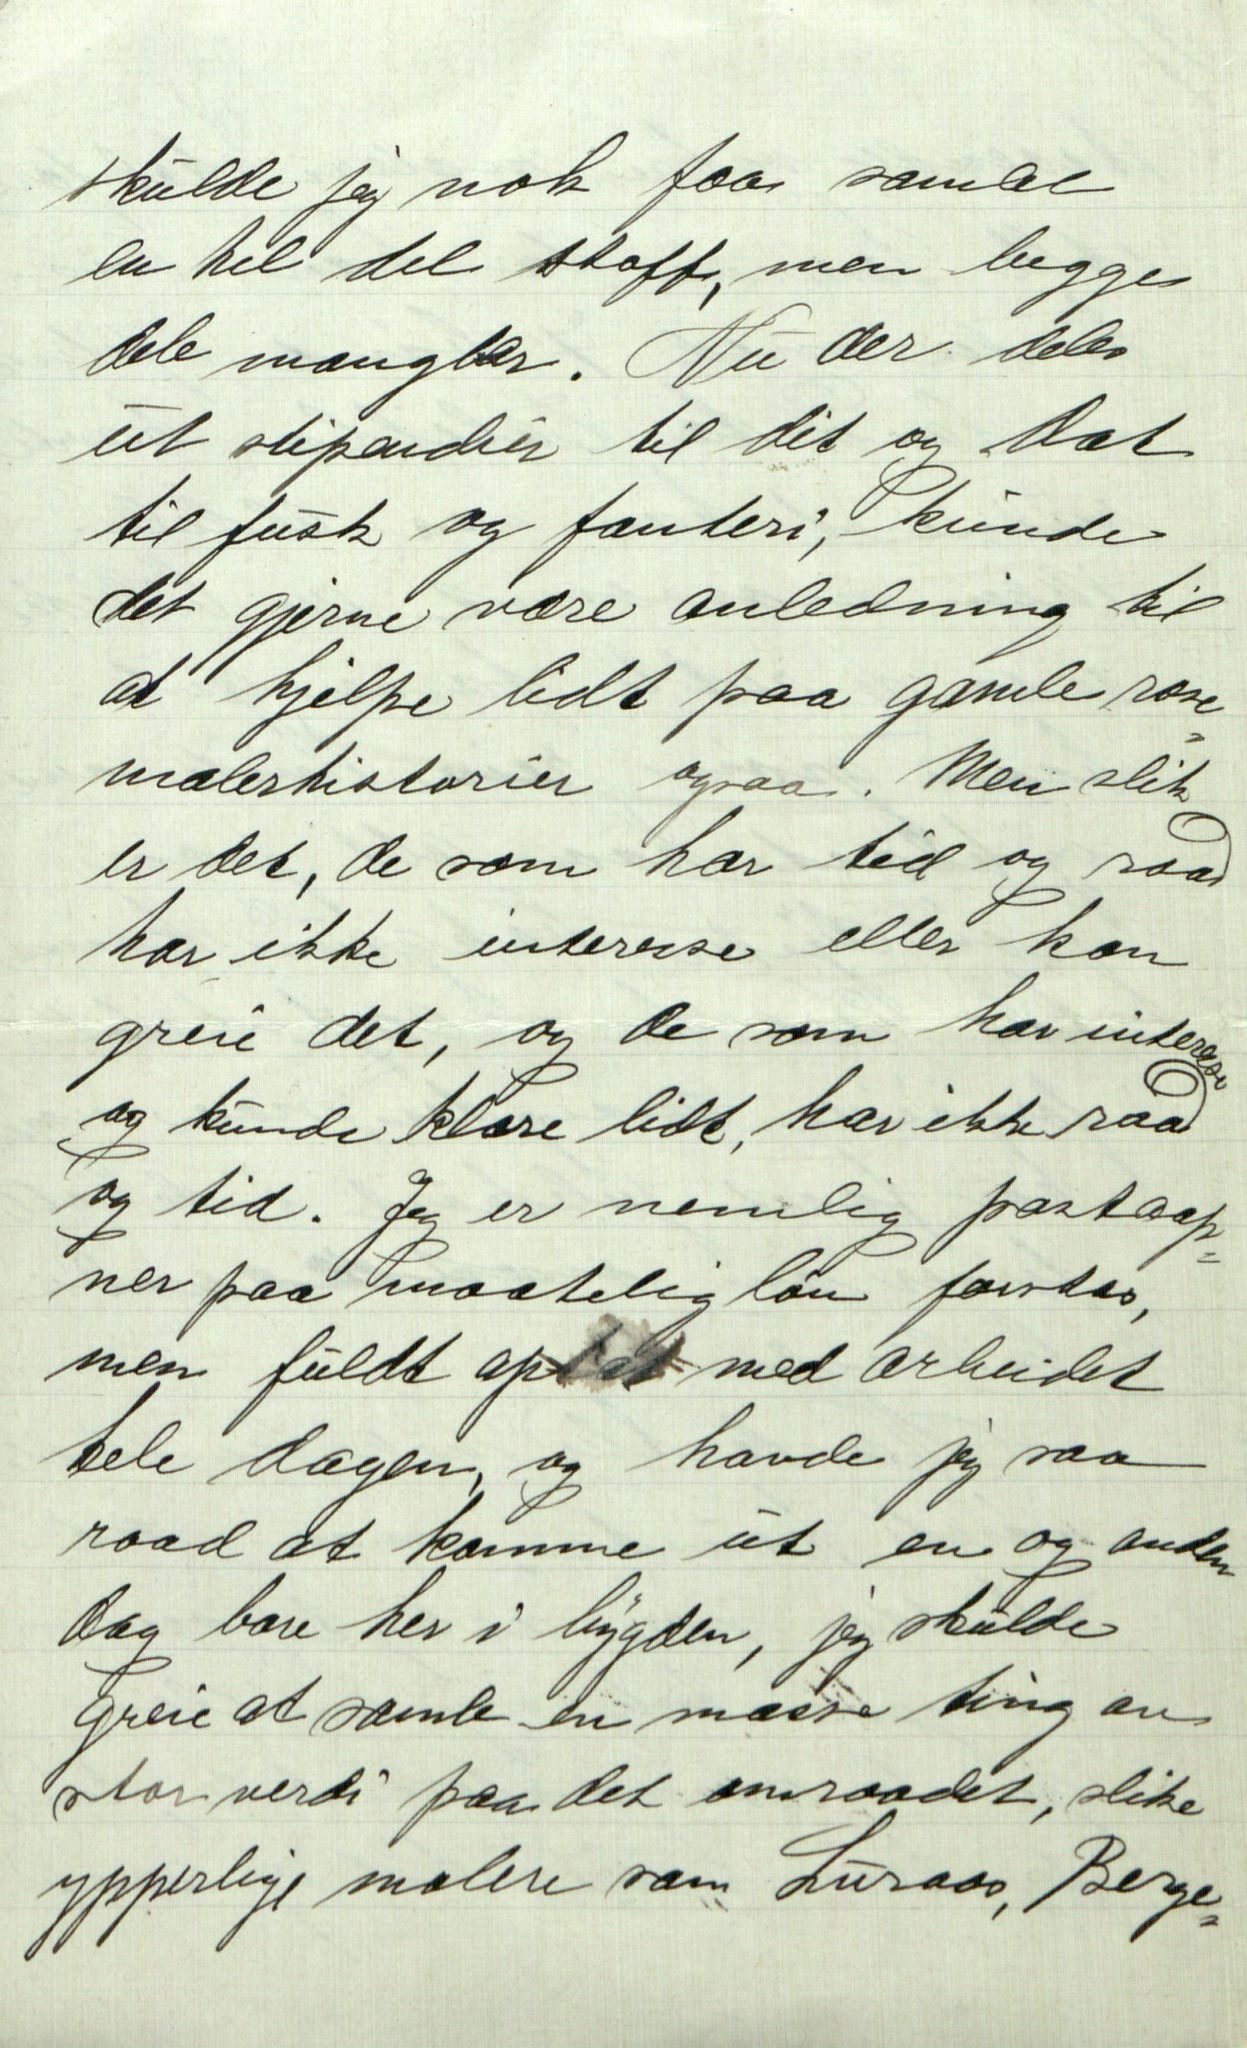 skulde jeg nok faa samlet
en hel del stoff, men begge
dele mangler. Nu der deles
ut stipendier til dit og dat
til fusk og fanteri, kunde
det gjerne være anledning til
at hjelpe lidt paa gamle rose=
malerhistorier ogsaa. Men slik
er det, de som har tid og raad
har ikke interesse eller kan
greie det, og de som har interesse
og kunde klare lidt, har ikke raad
og tid. Jeg er nemlig postaap=
ner paa maatelig løn forstaas,
men fuldt optat med arbeidet
hele dagen, og havde jeg saa
raad at komme ut en og anden
dag bare her i bygden, jeg skulde
greie at samle en masse ting av
stor verdi paa det omraadet, slike
ypperlige malere som Luraas, Berge=